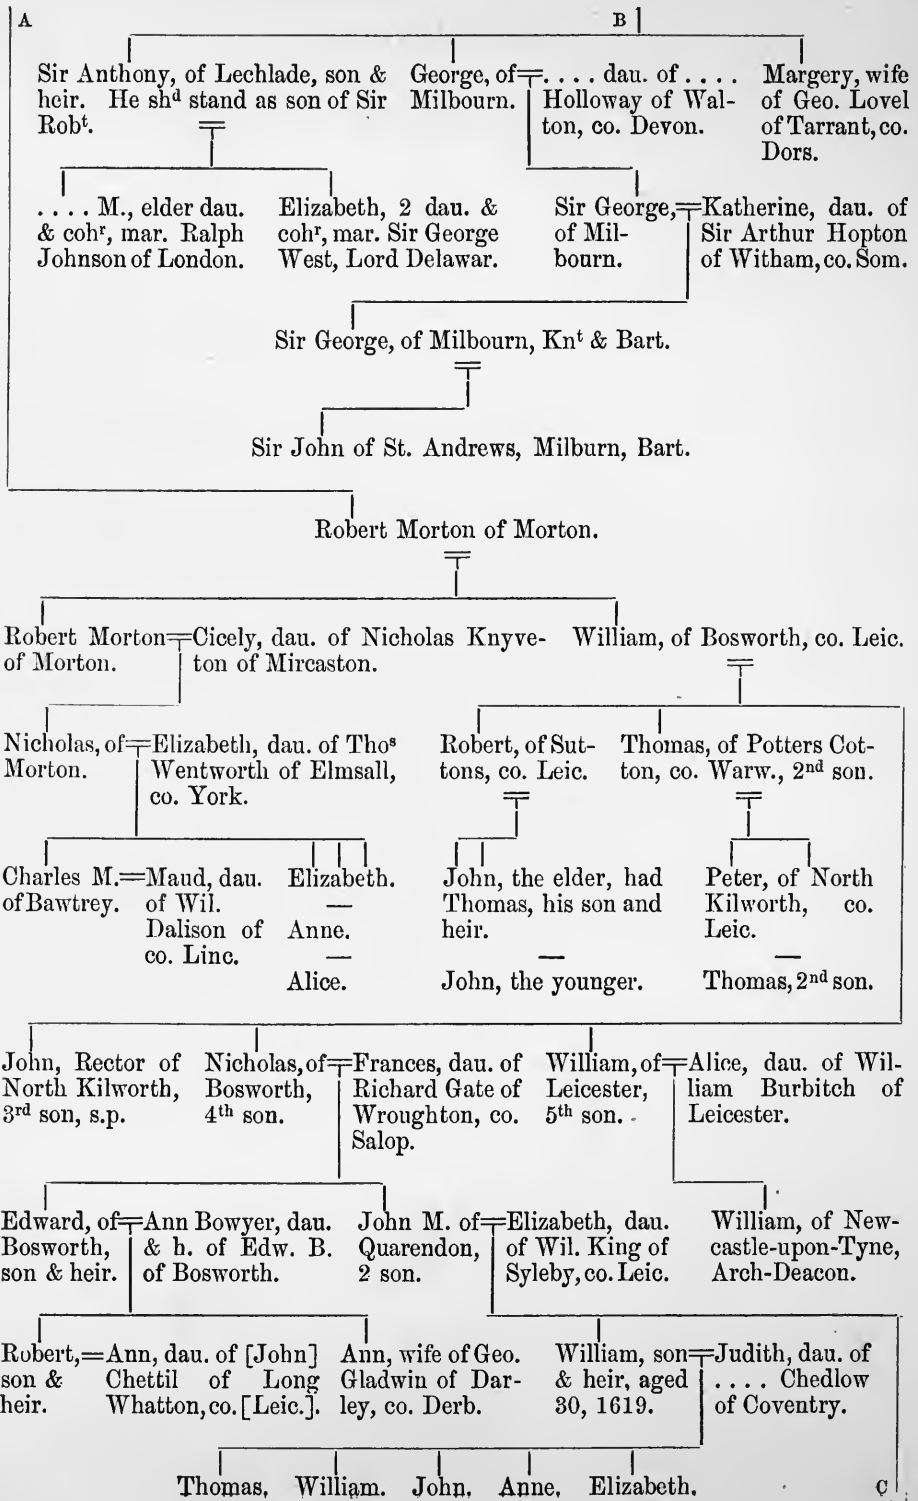 A
B
Sir Anthony, of Lechlade, son &
heir. He shᵈ stand as son of Sir
Robᵗ.
George, of
Milbourn.
.... dau. of ....
Holloway of Wal-
ton, co. Devon.
Margery, wife
of Geo. Lovel
of Tarrant, co.
Dors.
.... M., elder dau.
& cohʳ, mar. Ralph
Johnson of London.
Elizabeth, 2 dau. &
cohʳ, mar. Sir George
West, Lord Delawar.
Sir George,
of Mil-
bourn.
Katherine, dau. of
Sir Arthur Hopton
of Witham, co. Som.
Sir George, of Milbourn, Knᵗ & Bart.
Sir John of St. Andrews, Milburn, Bart.
Robert Morton of Morton.
Robert Morton
of Morton.
Cicely, dau. of Nicholas Knyve-
ton of Mircaston.
William, of Bosworth, co. Leic.
Nicholas, of
Morton.
Elizabeth, dau. of Thoˢ
Wentworth of Elmsall,
co. York.
Robert, of Sut-
tons, co. Leic.
Thomas, of Potters Cot-
ton, co. Warw., 2ⁿᵈ son.
Charles M.
of Bawtrey.
Maud, dau.
of Wil.
Dalison of
co. Linc.
Elizabeth.
—
Anne.
—
Alice.
John, the elder, had
Thomas, his son and
heir.
—
John, the younger.
Peter, of North
Kilworth, co.
Leic.
—
Thomas, 2ⁿᵈ son.
John, Rector of
North Kilworth,
3ʳᵈ son, s.p.
Nicholas, of
Bosworth,
4ᵗʰ son.
Frances, dau. of
Richard Gate of
Wroughton, co.
Salop.
William, of
Leicester,
5ᵗʰ son.
Alice, dau. of Wil-
liam Burbitch of
Leicester.
Edward, of
Bosworth,
son & heir.
Ann Bowyer, dau.
& h. of Edw. B.
of Bosworth.
John M. of
Quarendon,
2 son.
Elizabeth, dau.
of Wil. King of
Syleby, co. Leic.
William, of New-
castle-upon-Tyne,
Arch-Deacon.
Robert,
son &
heir.
Ann, dau. of [John]
Chettil of Long
Whatton, co. [Leic.].
Ann, wife of Geo.
Gladwin of Dar-
ley, co. Derb.
William, son
& heir, aged
30, 1619.
Judith, dau. of
.... Chedlow
of Coventry.
Thomas. William. John. Anne. Elizabeth.
C